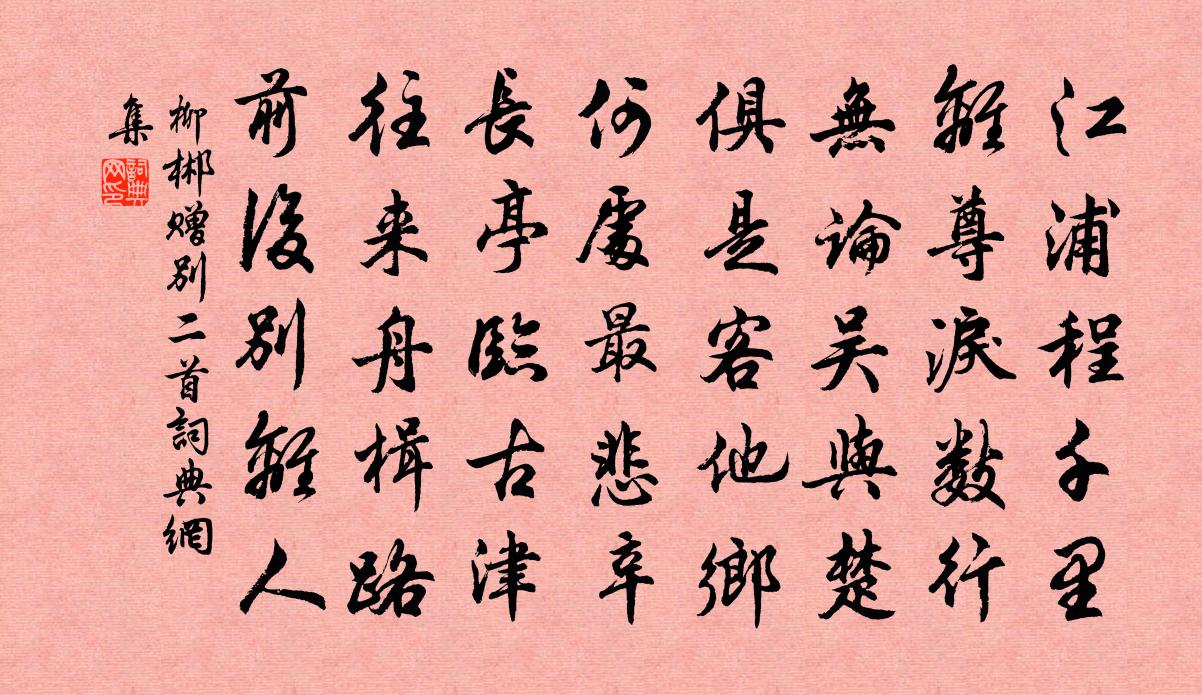 江浦程千里
離尊淚數行
無論吴與楚
俱是客他鄉
何處最悲辛
長亭臨古津
往来舟楫路
前後别離人
柳郴赠别二首詞典網
集
詞典网印